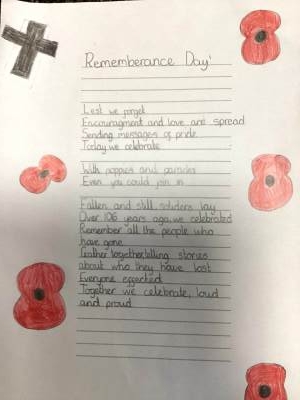 Rememberance Day'
Lest we forget
Encouragment and love are spread
Sending messages of pride
Today we celebrate
With poppies and parades
Even you could join in
Fallen and still soliders lay
Over 106 years ago, we celebrated
Remember all the people who
have gone
Gather together, telling stories
about who they have lost
Everyone affected
Together we celebrate, loud
and proud